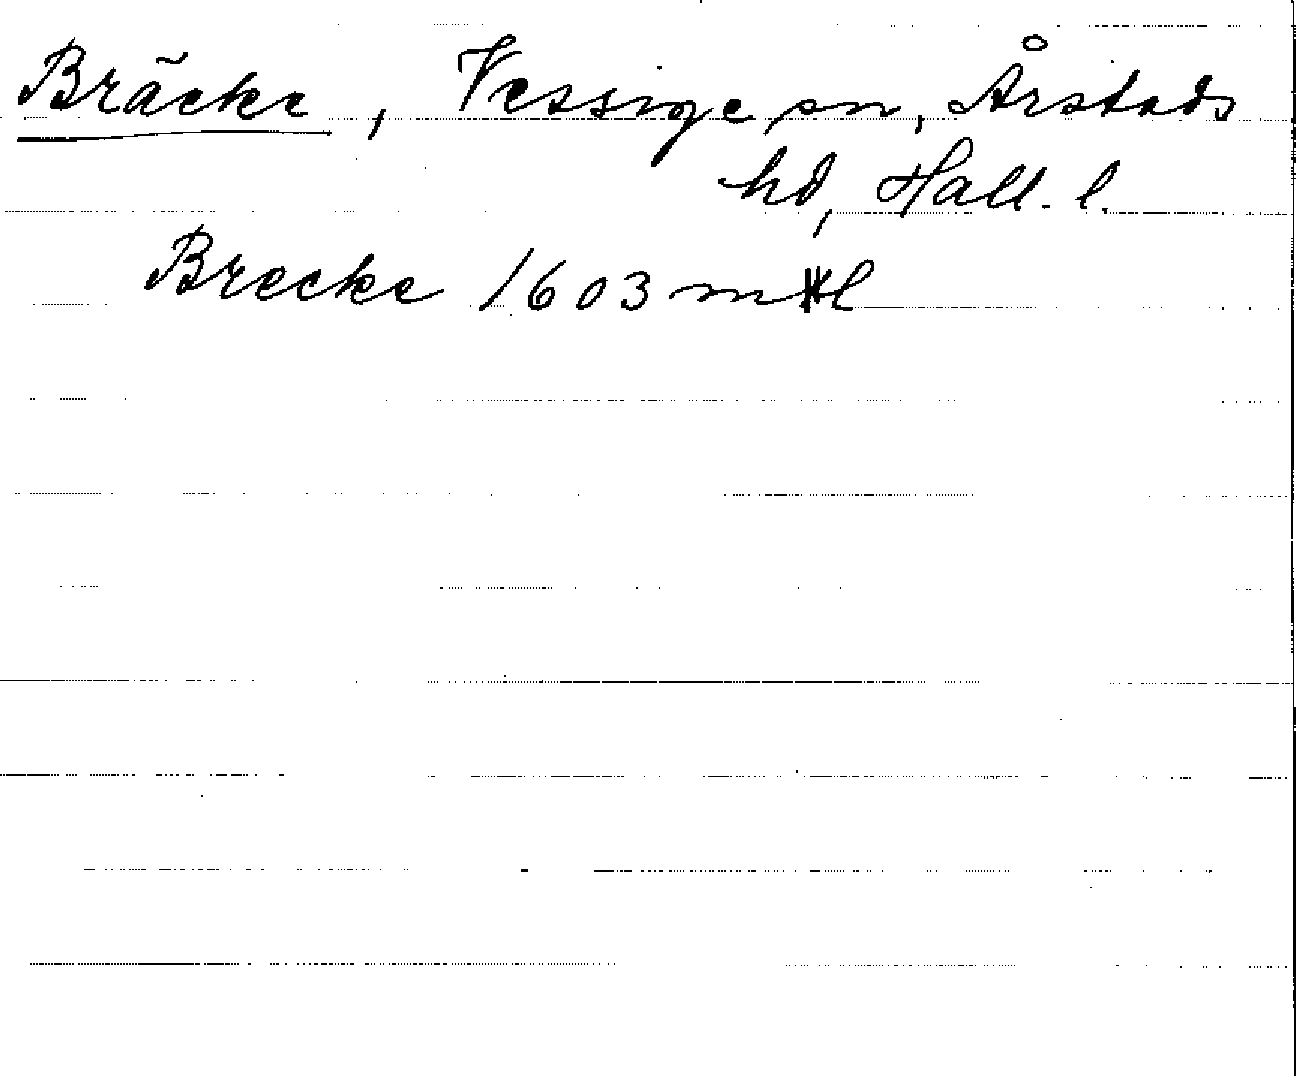 Bräcke, Vessige sn, Årstads
hd, Hall. l.
Brecke 1603 mtl